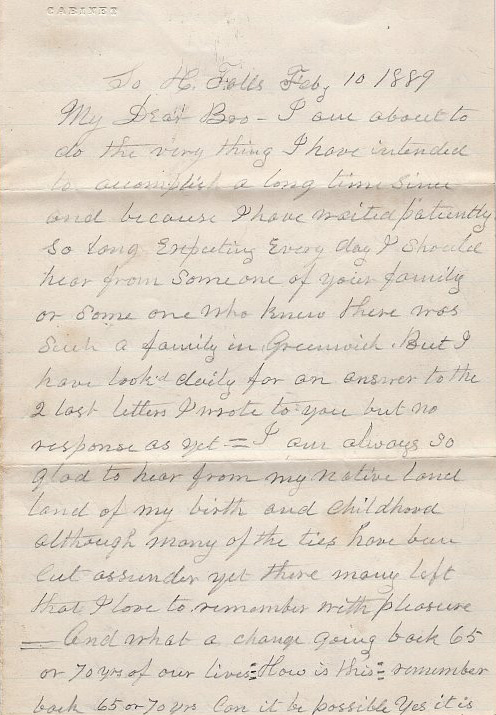 CABINET
So H. Falls Feby 10 1889
My Dear Bro - I am about to
do the very thing I have intended
to accomplish a long time since
and because I have waited patiently
so long Expecting Every day I should
hear from some one of your family
or some one who knew there was
such a family in Greenwich. But I
have look'd daily for an answer to the
2 last letters I wrote to you but no
response as yet = I am always so
glad to hear from my native land
land of my birth and childhood
although many of the ties have been
cut assunder yet there many left
that I love to remember with pleasure
= And what a change going back 65
or 70 yrs of our lives = How is this = remember
back 65 or 70 yrs Can it be possible Yes it is